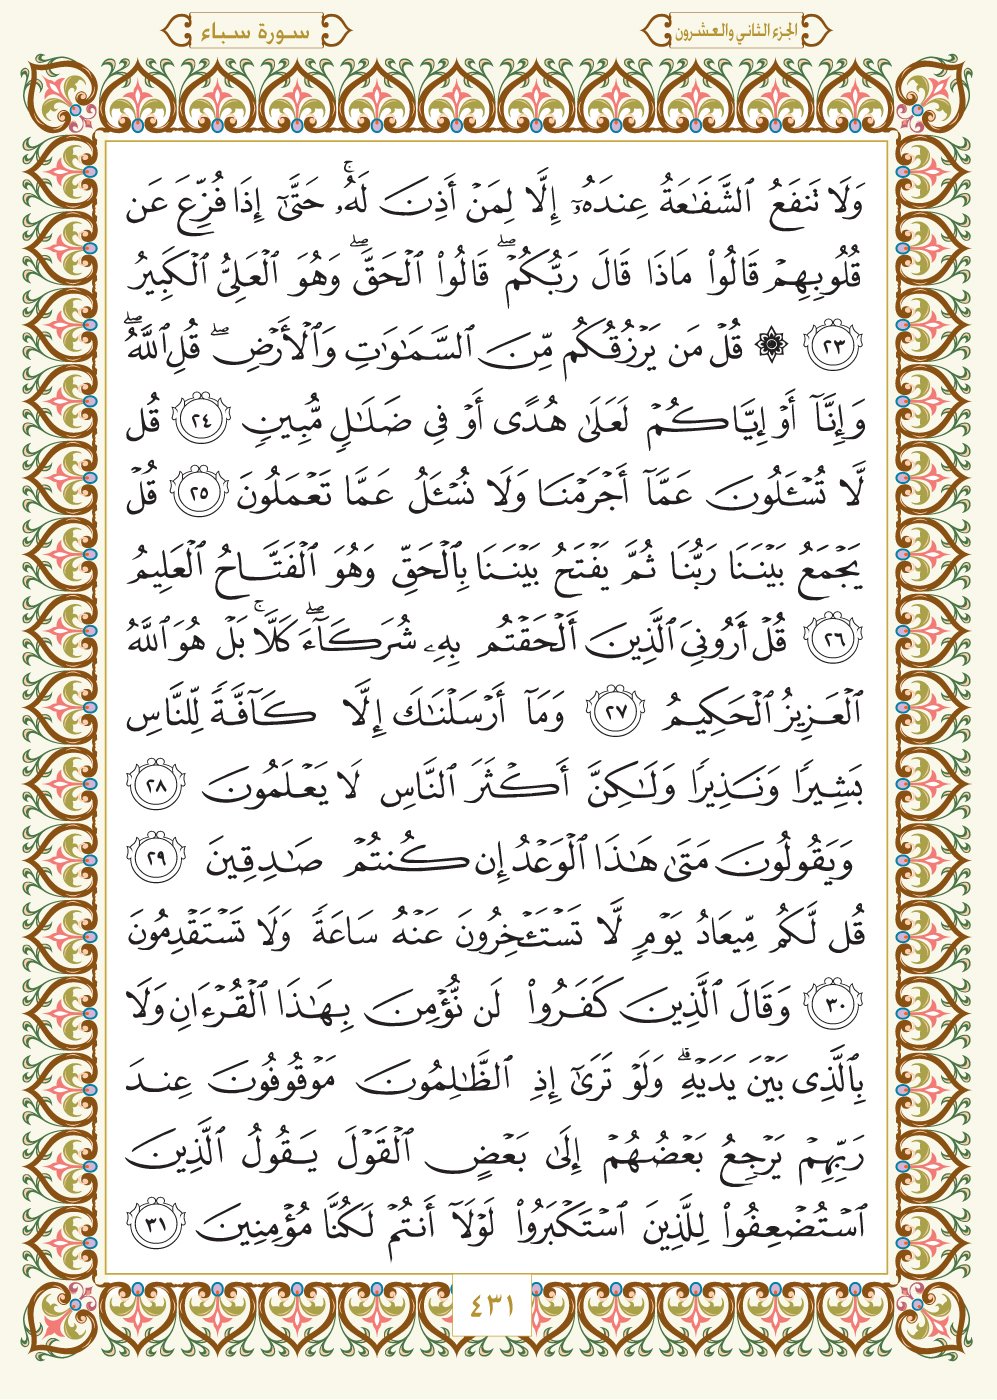 الجزء الثاني والعشرون
سورة سباء
وَلَا تَنفَعُ ٱلشَّفَٰعَةُ عِندَهُۥٓ إِلَّا لِمَنۡ أَذِنَ لَهُۥۚ حَتَّىٰٓ إِذَا فُزِّعَ عَن
قُلُوبِهِمۡ قَالُواْ مَاذَا قَالَ رَبُّكُمۡۖ قَالُواْ ٱلۡحَقَّۖ وَهُوَ ٱلۡعَلِيُّ ٱلۡكَبِيرُ
٢٣ ۞ قُلۡ مَن يَرۡزُقُكُم مِّنَ ٱلسَّمَٰوَٰتِ وَٱلۡأَرۡضِۖ قُلِ ٱللَّهُۖ
وَإِنَّآ أَوۡ إِيَّاكُمۡ لَعَلَىٰ هُدًى أَوۡ فِي ضَلَٰلٖ مُّبِينٖ ٢٤ قُل
لَّا تُسۡـَٔلُونَ عَمَّآ أَجۡرَمۡنَا وَلَا نُسۡـَٔلُ عَمَّا تَعۡمَلُونَ ٢٥ قُلۡ
يَجۡمَعُ بَيۡنَنَا رَبُّنَا ثُمَّ يَفۡتَحُ بَيۡنَنَا بِٱلۡحَقِّ وَهُوَ ٱلۡفَتَّاحُ ٱلۡعَلِيمُ
٢٦ قُلۡ أَرُونِيَ ٱلَّذِينَ أَلۡحَقۡتُم بِهِۦ شُرَكَآءَۖ كَلَّاۚ بَلۡ هُوَ ٱللَّهُ
ٱلۡعَزِيزُ ٱلۡحَكِيمُ ٢٧ وَمَآ أَرۡسَلۡنَٰكَ إِلَّا كَآفَّةٗ لِّلنَّاسِ
بَشِيرٗا وَنَذِيرٗا وَلَٰكِنَّ أَكۡثَرَ ٱلنَّاسِ لَا يَعۡلَمُونَ ٢٨
وَيَقُولُونَ مَتَىٰ هَٰذَا ٱلۡوَعۡدُ إِن كُنتُمۡ صَٰدِقِينَ ٢٩
قُل لَّكُم مِّيعَادُ يَوۡمٖ لَّا تَسۡتَـٔۡخِرُونَ عَنۡهُ سَاعَةٗ وَلَا تَسۡتَقۡدِمُونَ
٣٠ وَقَالَ ٱلَّذِينَ كَفَرُواْ لَن نُّؤۡمِنَ بِهَٰذَا ٱلۡقُرۡءَانِ وَلَا
بِٱلَّذِي بَيۡنَ يَدَيۡهِۗ وَلَوۡ تَرَىٰٓ إِذِ ٱلظَّٰلِمُونَ مَوۡقُوفُونَ عِندَ
رَبِّهِمۡ يَرۡجِعُ بَعۡضُهُمۡ إِلَىٰ بَعۡضٍ ٱلۡقَوۡلَ يَقُولُ ٱلَّذِينَ
ٱسۡتُضۡعِفُواْ لِلَّذِينَ ٱسۡتَكۡبَرُواْ لَوۡلَآ أَنتُمۡ لَكُنَّا مُؤۡمِنِينَ ٣١
٤٣١